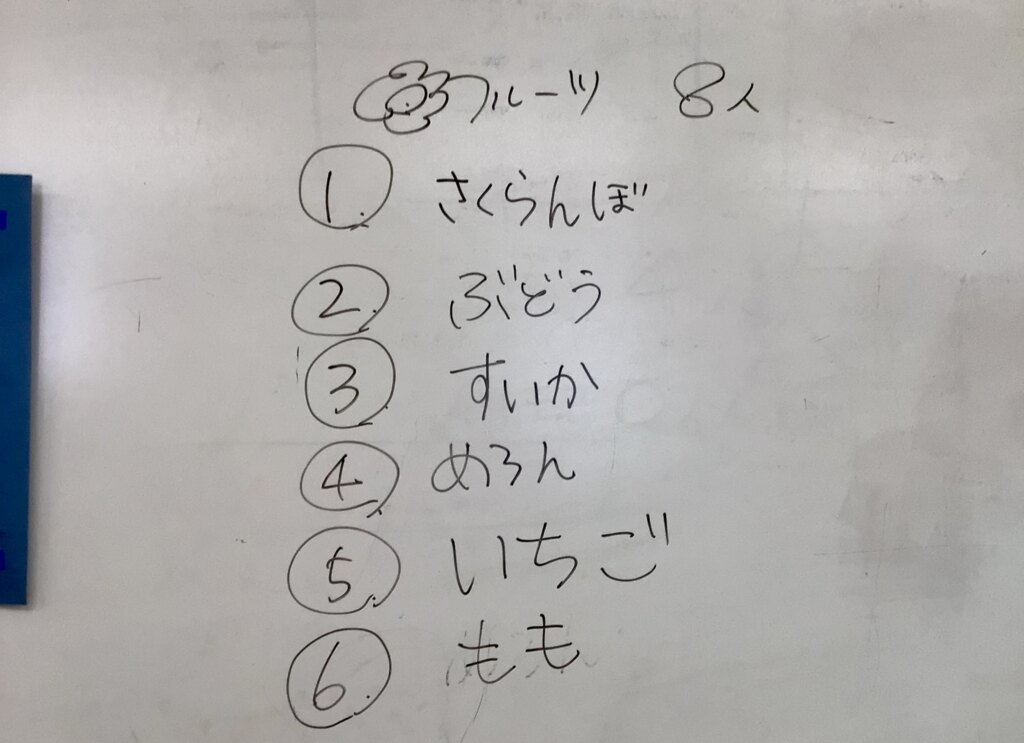 フルーツ 8人
① さくらんぼ
② ぶどう
③ すいか
④ めろん
⑤ いちご
⑥ もも